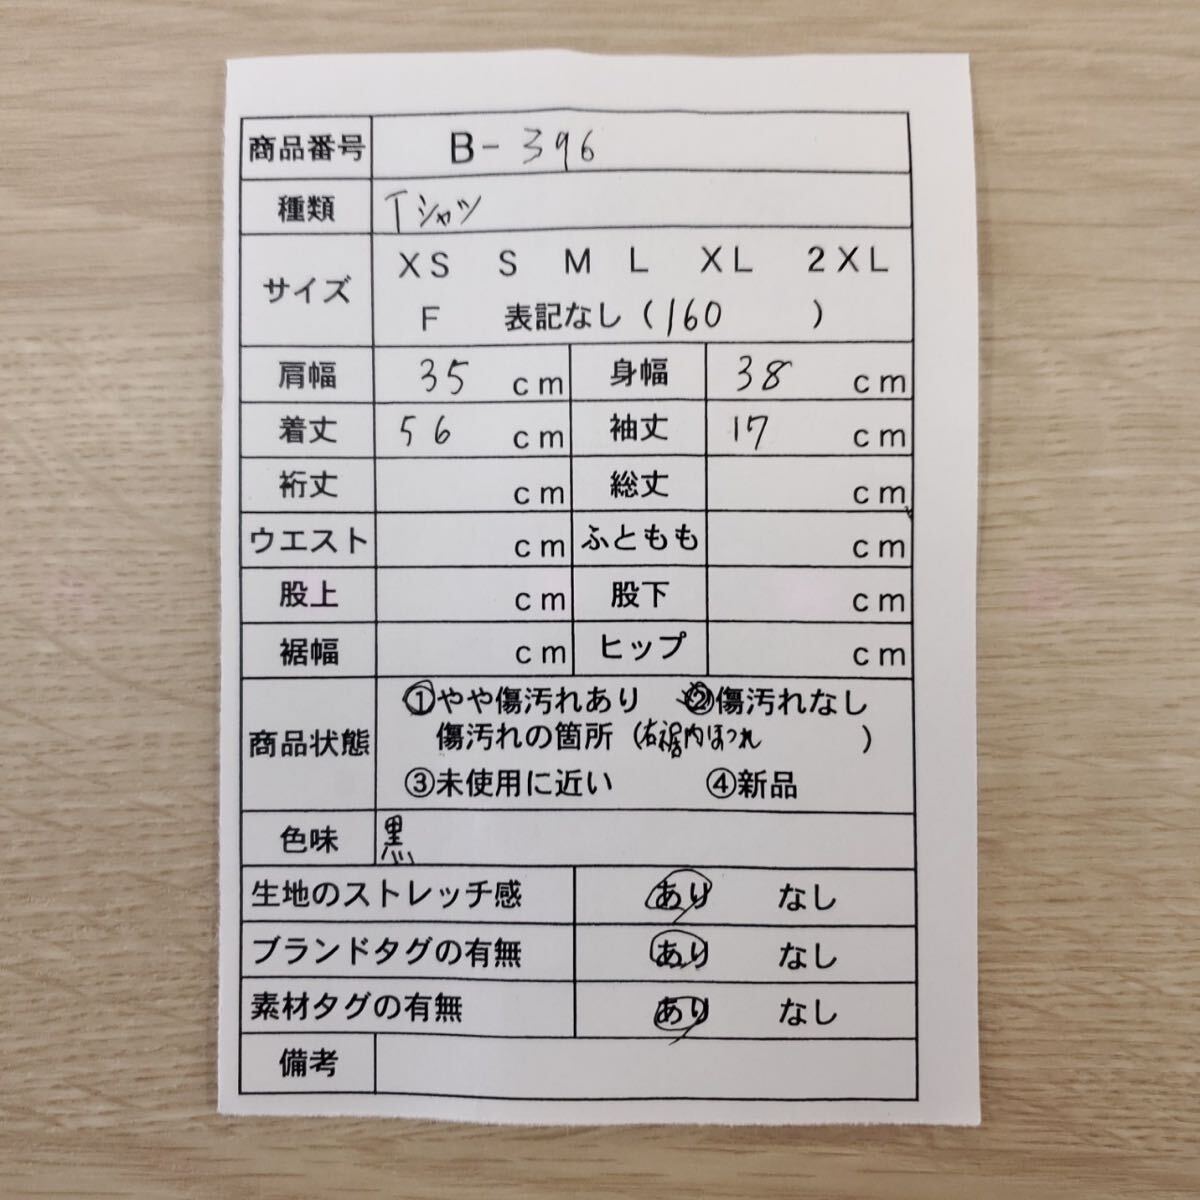 商品番号 B-396
種類 Tシャツ
サイズ XS S M L XL 2XL
F 表記なし(160 )
肩幅 35 cm 身幅 38 cm
着丈 56 cm 袖丈 17 cm
裄丈 cm 総丈 cm
ウエスト cm ふともも cm
股上 cm 股下 cm
裾幅 cm ヒップ cm
商品状態 ①やや傷汚れあり ②傷汚れなし
傷汚れの箇所(右裾内ほつれ )
③未使用に近い ④新品
色味 黒
生地のストレッチ感 あり なし
ブランドタグの有無 あり なし
素材タグの有無 あり なし
備考